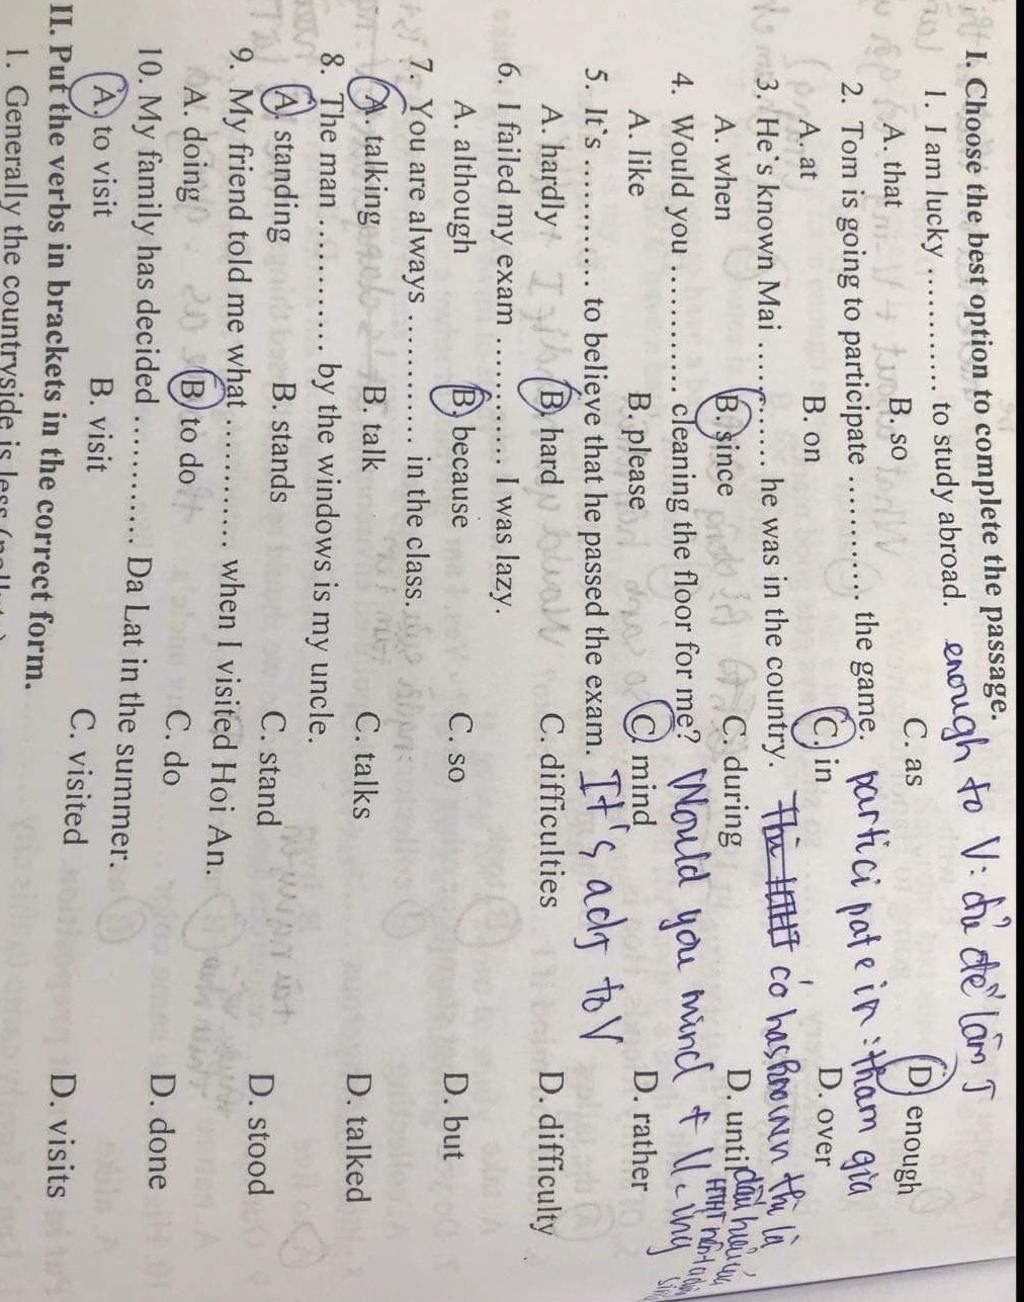 I. Choose the best option to complete the passage.
1. I am lucky ............ to study abroad. enough to V: đủ để làm
A. that B. so C. as D. enough
2. Tom is going to participate ............ the game. participate in: tham gia
A. at B. on C. in D. over
3. He`s known Mai ............ he was in the country. Thì HTHT có has known thì là
A. when B. since C. during D. until dấu hiệu của
4. Would you ............ cleaning the floor for me? Would you mind + V-ing
A. like B. please C. mind D. rather
5. It`s ............ to believe that he passed the exam. It's adj to V
A. hardly B. hard C. difficulties D. difficulty
6. I failed my exam ............ I was lazy.
A. although B. because C. so D. but
7. You are always ............ in the class.
A. talking B. talk C. talks D. talked
8. The man ............ by the windows is my uncle.
A. standing B. stands C. stand D. stood
9. My friend told me what ............ when I visited Hoi An.
A. doing B. to do C. do D. done
10. My family has decided ............ Da Lat in the summer.
A. to visit B. visit C. visited D. visits
II. Put the verbs in brackets in the correct form.
1. Generally the countryside is less